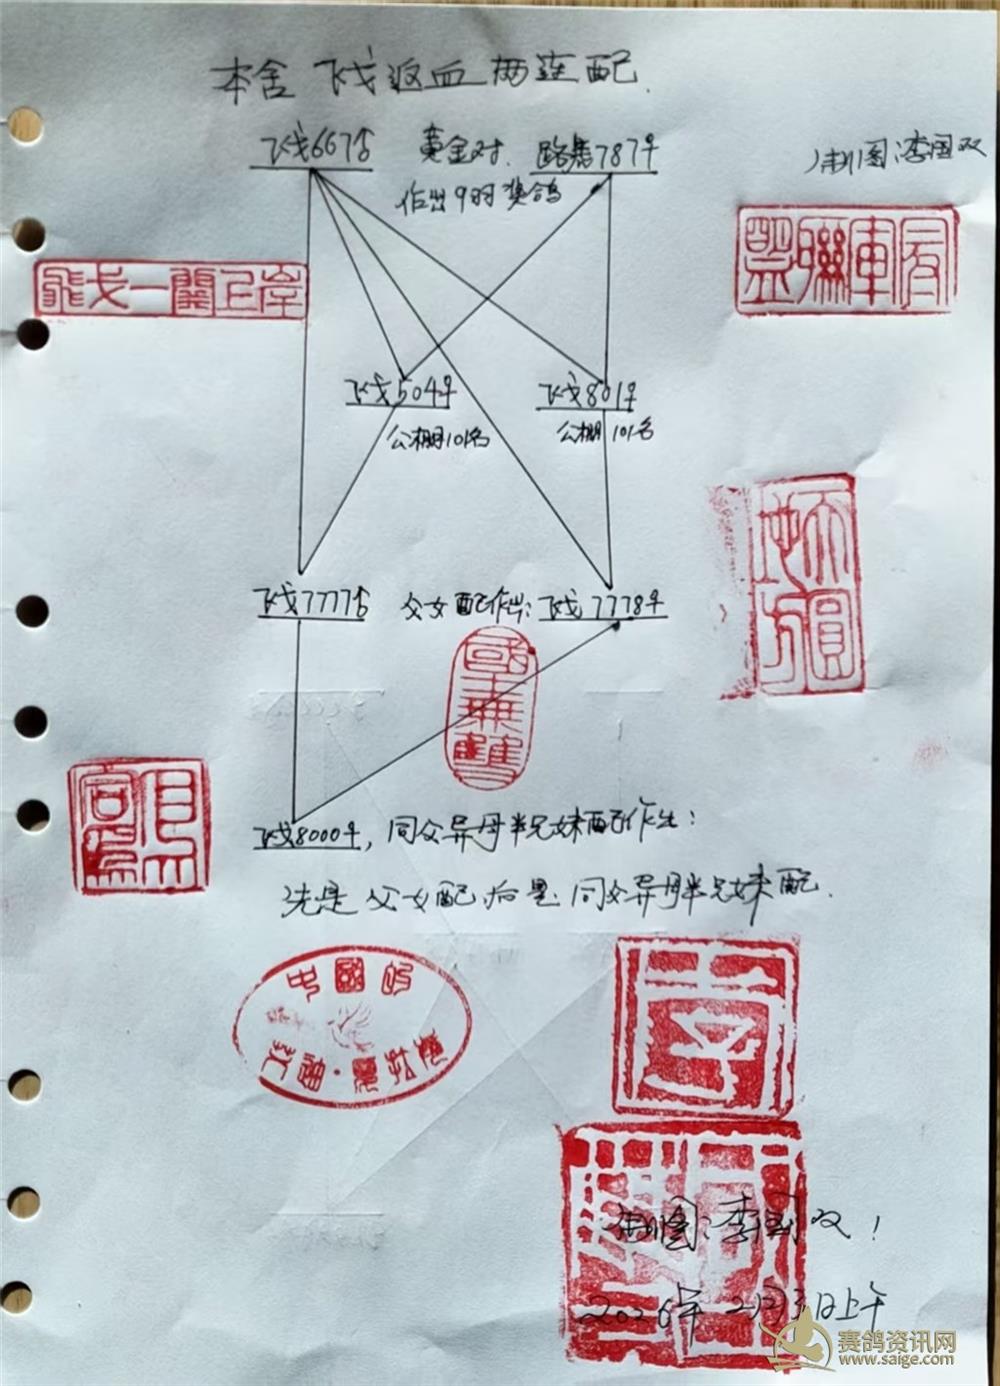 本舍 飞戈返血两连配.
飞戈667♂ 黄金对. 路易787♀
作出9羽奖鸽
制图:李国双
飞戈一关上岸
飞戈504♀ 飞戈801♀
公棚101名 公棚101名
飞戈7777♂ 父女配作出:飞戈7778♀
國士無雙
飞戈8000♀,同父异母半兄妹配作出:
先是父女配,后是同父异母半兄妹配.
中國的
李
制图:李国双!
2026年2月3日上午
赛鸽资讯网
www.saige.com